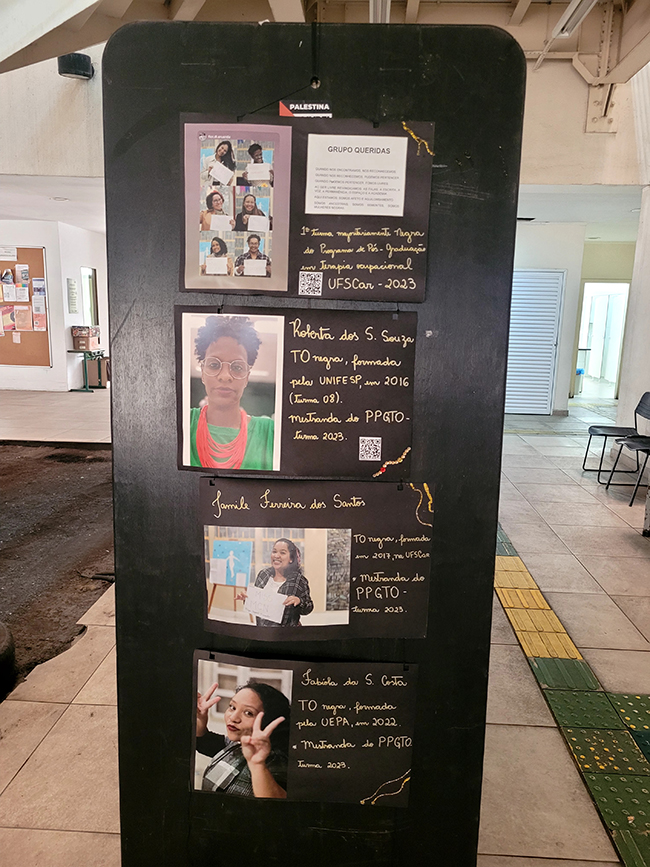 PALESTINA
GRUPO QUERIDAS
1ª turma majoritariamente Negra
do Programa de Pós-Graduação
em terapia ocupacional
UFSCar - 2023
Roberta dos S. Souza
TO negra, formada
pela UNIFESP, em 2016
(turma 08).
Mestranda do PPGTO-
turma 2023.
Jamile Ferreira dos Santos
TO negra, formada
em 2017, na UFSCar
• Mestranda do
PPGTO-
turma 2023.
Fabíola da S. Costa
TO negra, formada
pela UEPA, em 2022.
• Mestranda do PPGTO
turma 2023.